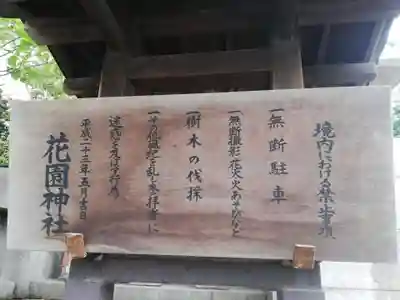 境内における禁止事項
一無断駐車
一無断撮影花火火あそびなど
一樹木の伐採
一その他風紀を乱し参拝者に
迷惑を及ぼす行為
平成二十三年五月吉日
花園神社